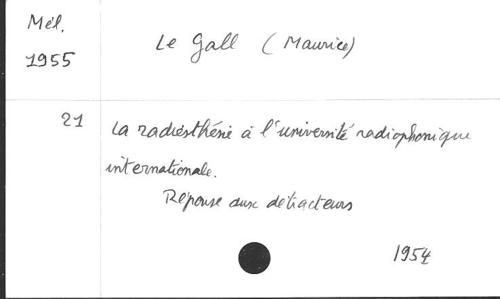 Mél.
1955
Le Gall (Maurice)
21
La radiésthésie à l'université radiophonique
internationale.
Réponse aux détracteurs
1954